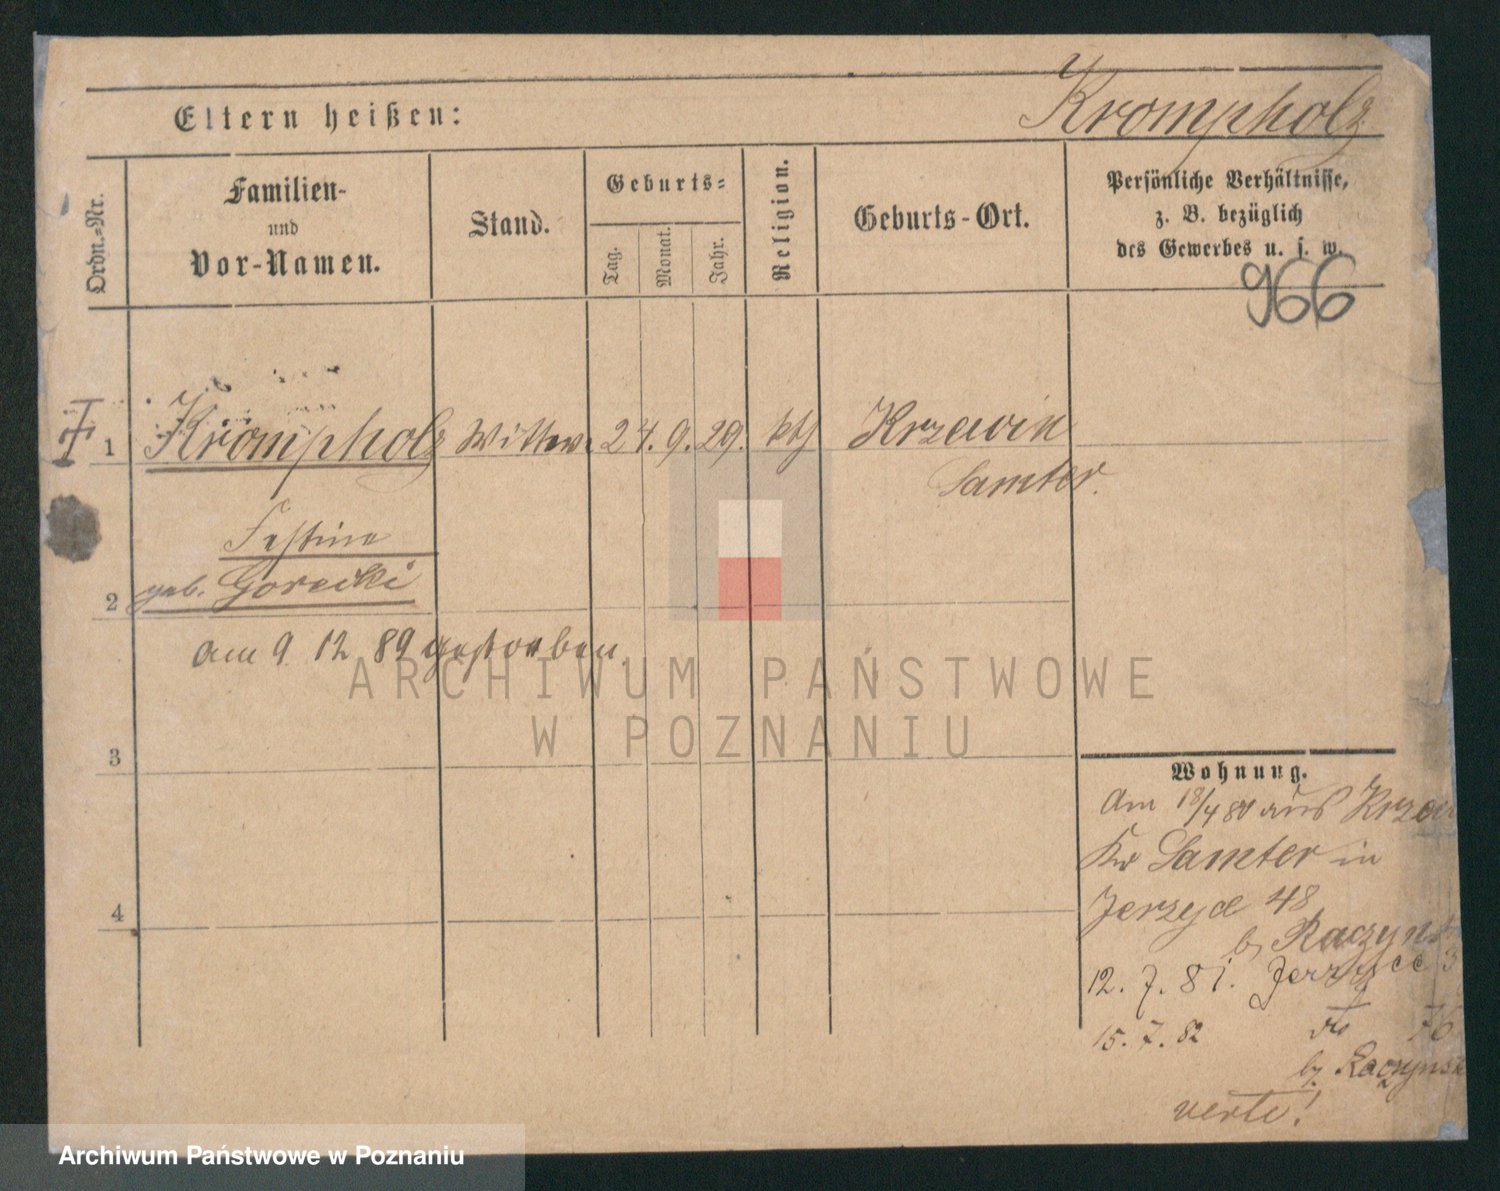 Krompholz
Eltern heißen:
Ordn.-Nr.
Familien-
und
Vor-Namen.
Stand.
Geburts-
Tag.
Monat.
Jahr.
Religion.
Geburts-Ort.
Persönliche Verhältnisse,
z. B. bezüglich
des Gewerbes u. s. w.
966
1 Krompholz Wittwe. 24. 9. 29. kth Krzewin
Samter.
geb. Gorecki
2
am 9 12 89 gestorben.
ARCHIWUM PAŃSTWOWE
W POZNANIU
3
Wohnung.
Am 18/4 80 aus
Kr Samter in
4
Jerzyce 48
b/ Raczynsk
12. 7. 81. Jerzyce 3
15. 7. 82 do 76
b/ Raczynsk
verte!
Archiwum Państwowe w Poznaniu